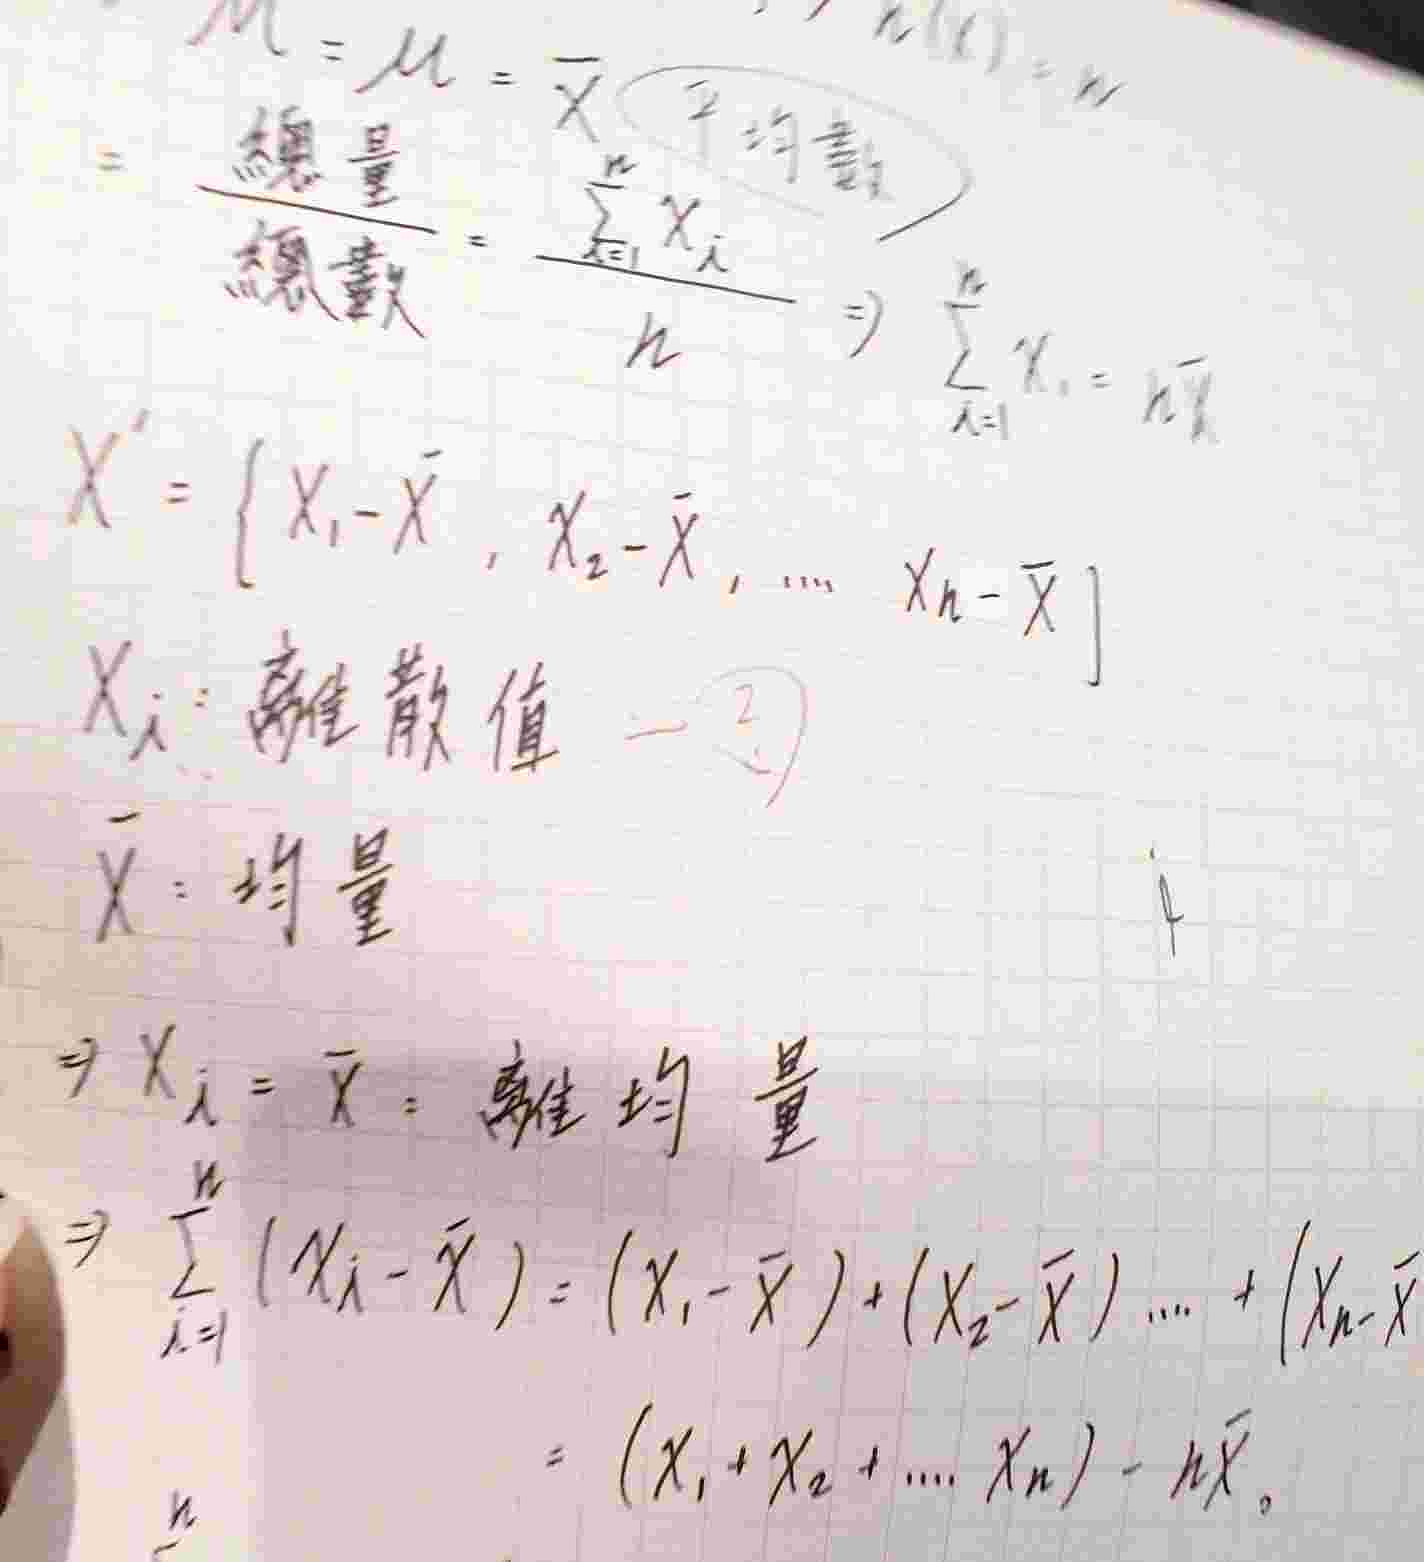 M = μ = x̄ 平均數
n(x) = n
= 總量 / 總數 = \sum_{i=1}^{n} x_i / n ⇒ \sum_{i=1}^{n} x_i = nx̄
X' = { x₁ - x̄ , x₂ - x̄ , .... xₙ - x̄ ]
x_i : 離散值 — ②
x̄ : 均量
⇒ x_i = x̄ : 離均量
⇒ \sum_{i=1}^{n} (x_i - x̄) = (x₁ - x̄) + (x₂ - x̄) .... + (xₙ - x̄
= (x₁ + x₂ + .... xₙ) - nx̄。
n